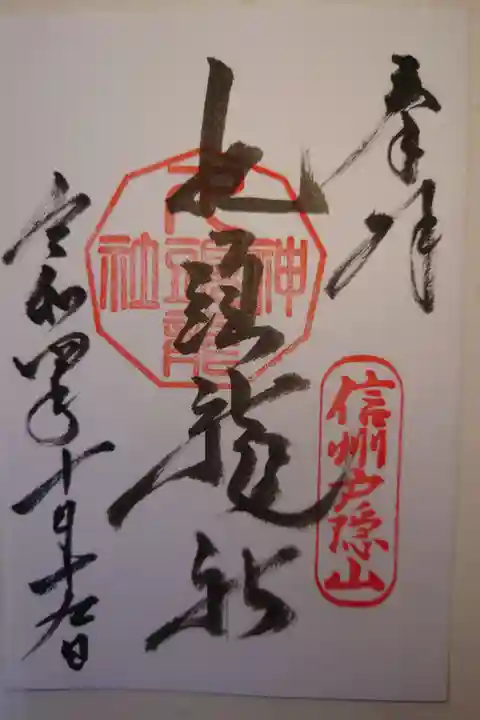 奉拝
信州戸隠山
九頭龍社
九頭龍神社
令和四年十月十九日